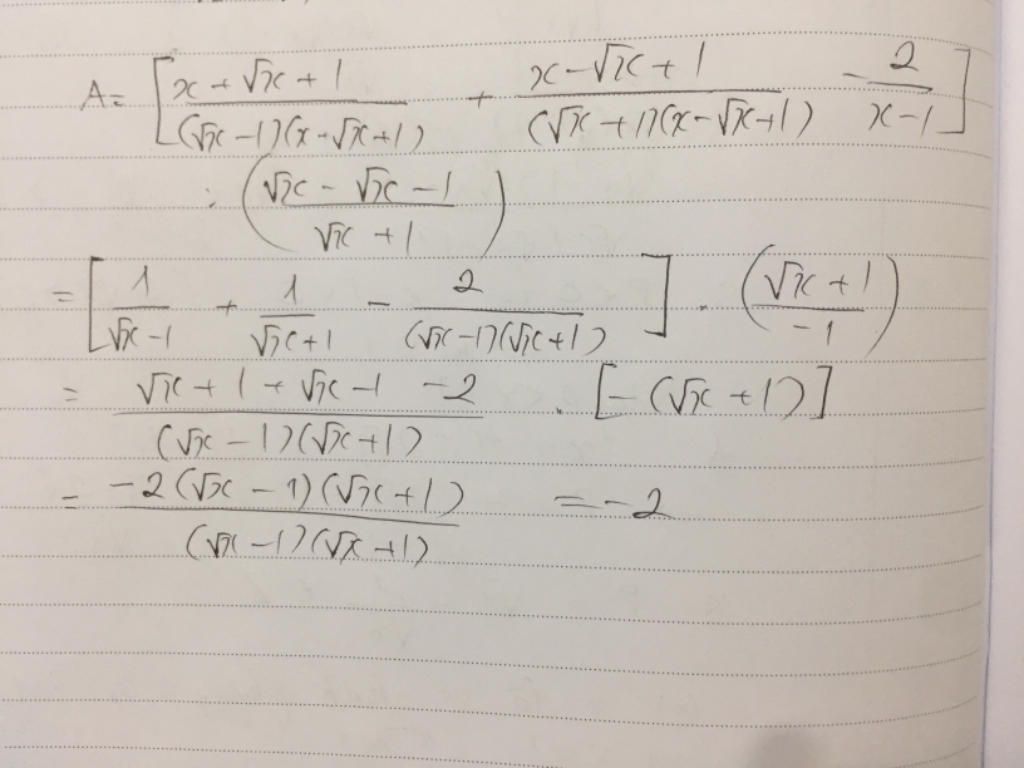 A = [ (x + √x + 1)/((√x - 1)(x + √x + 1)) + (x - √x + 1)/((√x + 1)(x - √x + 1)) - 2/(x - 1) ]
: ( (√x - √x - 1)/(√x + 1) )
= [ 1/(√x - 1) + 1/(√x + 1) - 2/((√x - 1)(√x + 1)) ] . ( (√x + 1)/(-1) )
= (√x + 1 + √x - 1 - 2)/((√x - 1)(√x + 1)) . [-(√x + 1)]
= (-2(√x - 1)(√x + 1))/((√x - 1)(√x + 1)) = -2